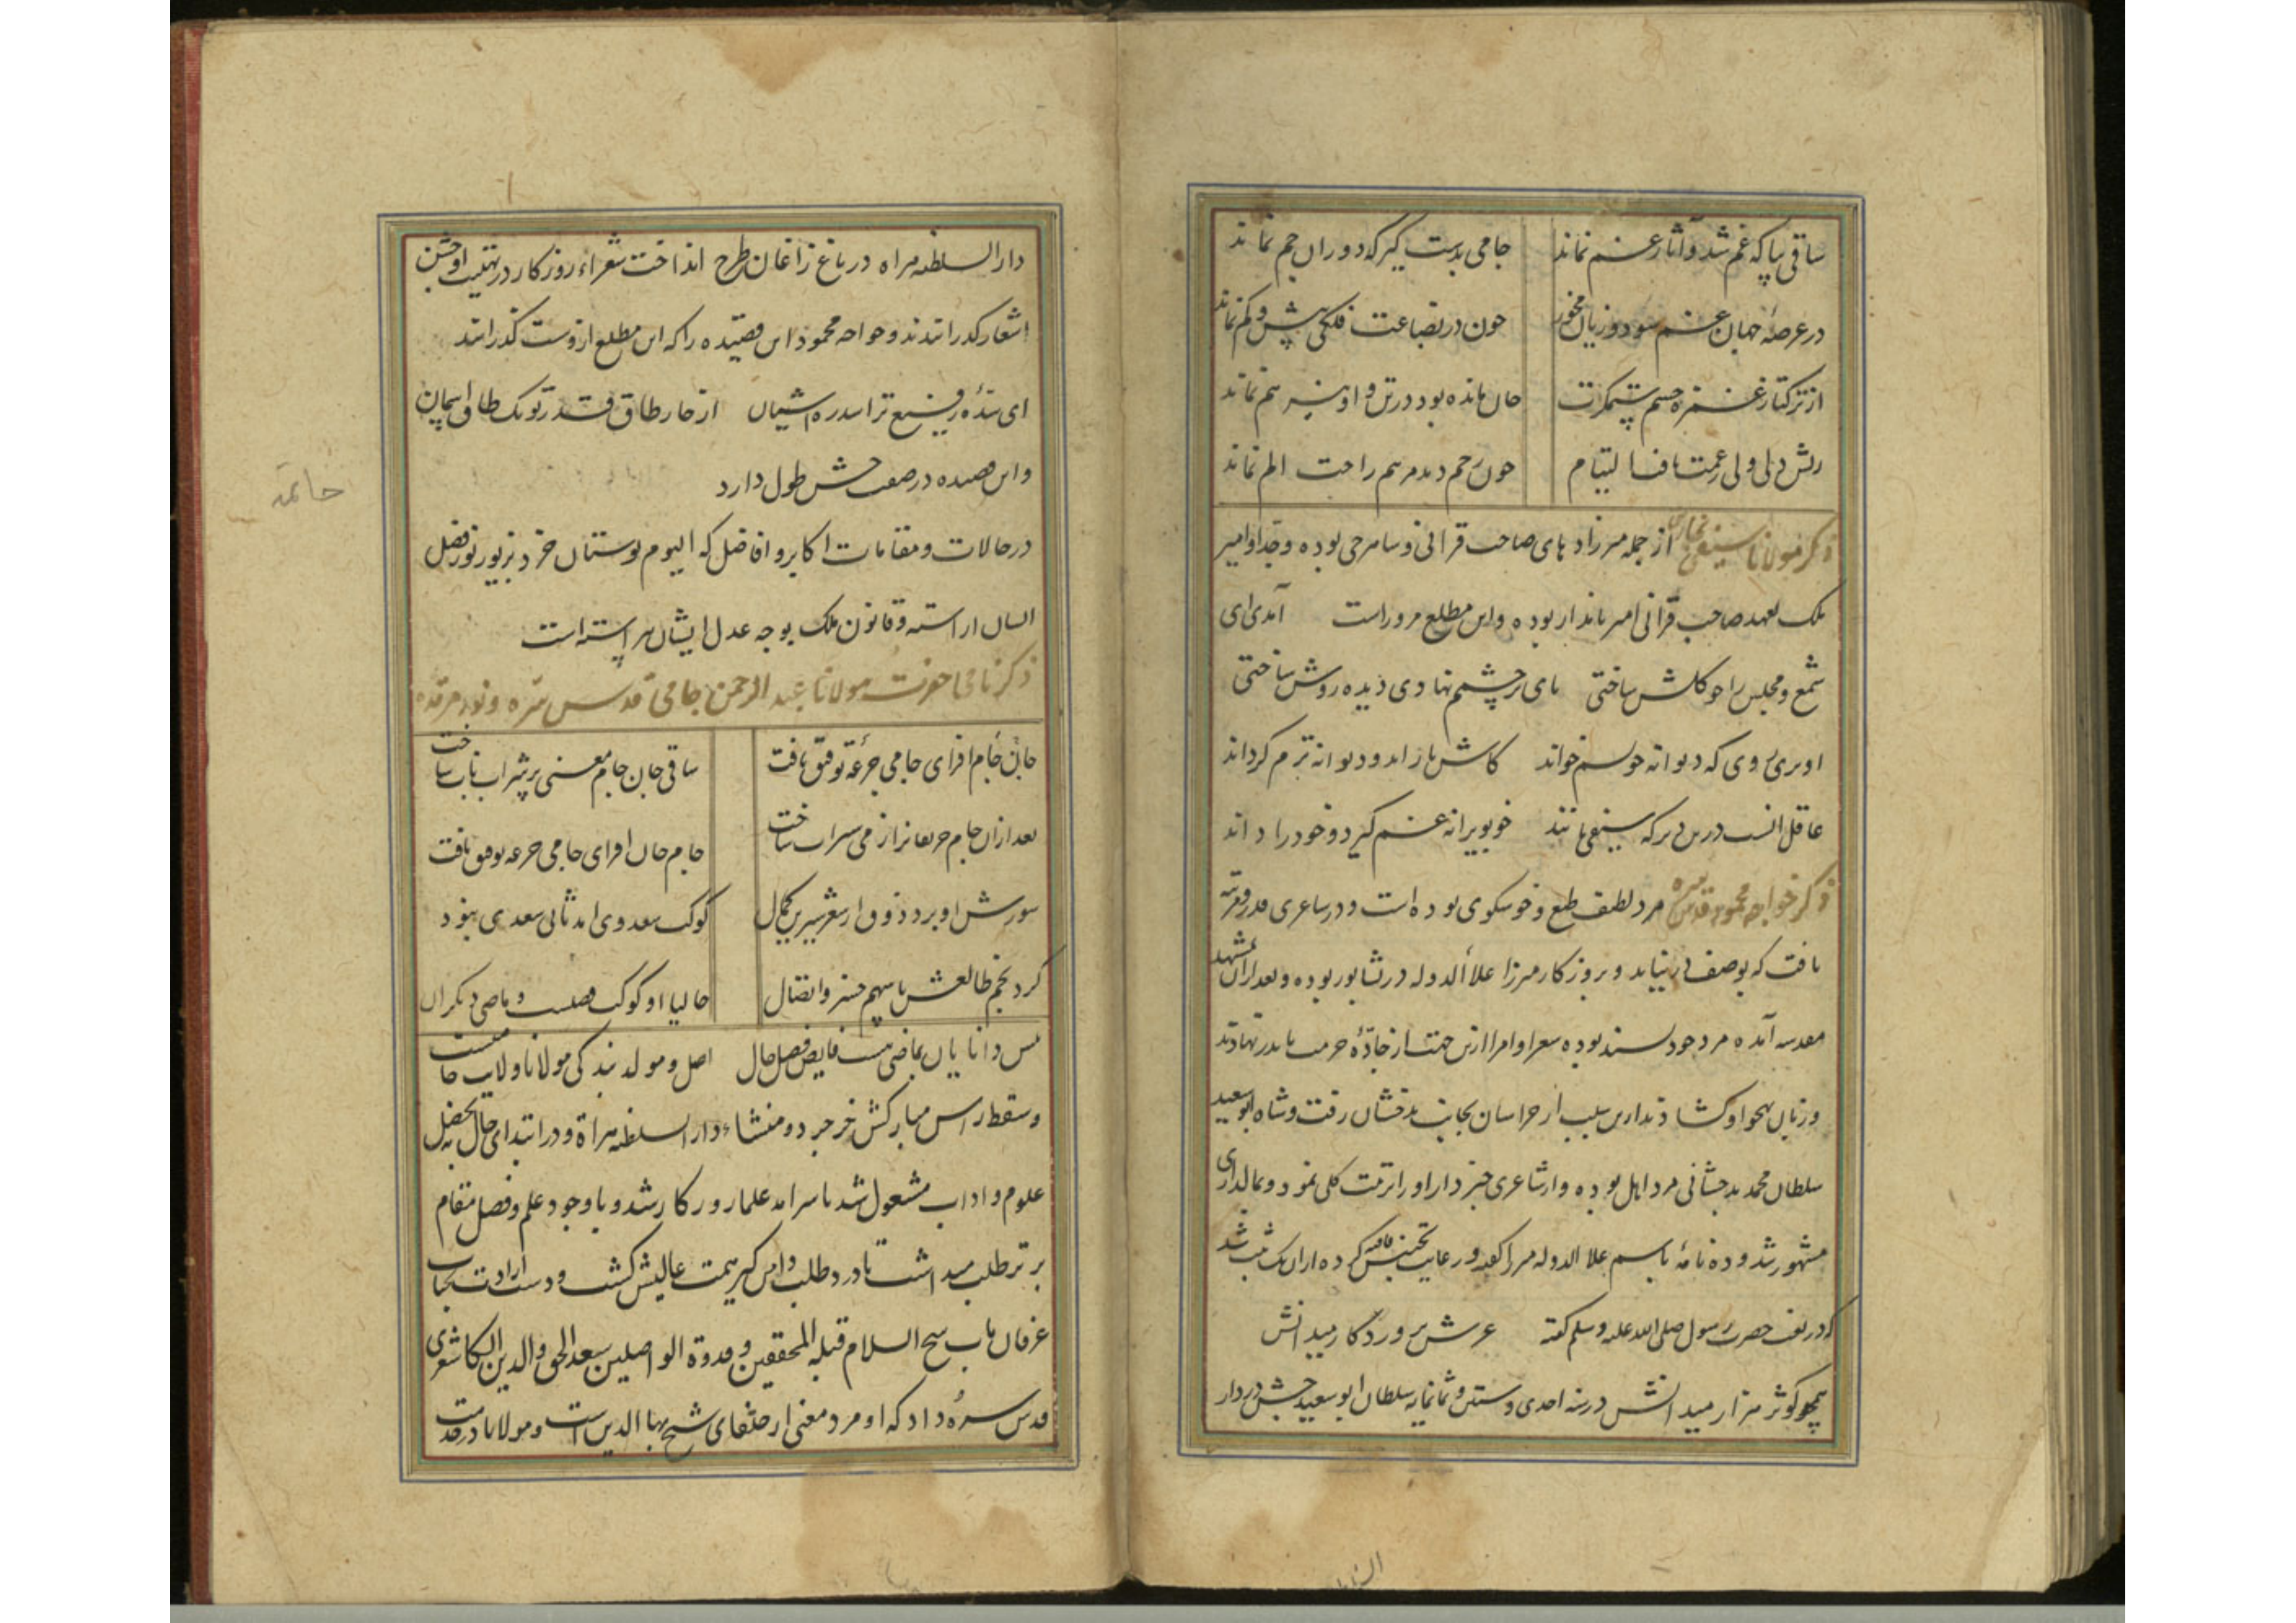 ساقی بیا که غم شد و آثار غم نماند جامی بدست گیر که دوران جم نماند
در عرصه جهان غم سود و زیان مخور چون در بضاعت فلکی بیش و کم نماند
از ترکتاز غمزه چشم ستمگرت جان مانده بود در تن و او نیز هم نماند
ریش دلی ولی غمت یافت التیام چون زخم دید مرهم راحت الم نماند
ذکر مولانا سیفی بخاری از جمله میرزاد های صاحب قرانی و بوده و جد او امیر
ملک بعهد صاحب قرانی امیر نامدار بوده و این مطلع مر وراست آمدی ای
شمع و مجلس را چو گلشن ساختی پای بر چشمم نهادی دیده روشن ساختی
او پری روی که دیوانه خویشم خواند کاش باز اید و دیوانه ترم گرداند
عاقل انست درین دیر که سیفی مانند خو بویرانه غم گیرد و خود را داند
ذکر خواجه محمود قدس سره مرد لطیف طبع و خوشگوی بوده است و در شاعری قدر و مرتبه
یافت که بوصف در نیاید و بروزگار میرزا علاء الدوله در نشابور بوده و بعد از ان بمشهد
مقدسه آمده مرد خود پسند بوده شعرا و امرا ازین جهت از جادّهٔ حرمت پا بدر نهادند
و زبان بهجو او گشادند ازین سبب از خراسان بجانب بدخشان رفت و شاه ابو سعید
سلطان محمد بدخشانی مرد اهل بوده و از شاعری خبر دار او را تربیت کلی نمود و بمالداری
مشهور شد و ده نامهٔ باسم علا الدوله میرزا گفته و رعایت تجنیس کرده از ان یک بیت ثبت شد
که در نعت حضرت رسول صلی الله علیه و سلم گفته عرش پروردگار میدانش
همچو کوثر هزار میدانش در سنه احدی و ستین و ثمانمایه سلطان ابو سعید جشنی در دار
السلطنه هراه در باغ زاغان طرح انداخت شعراء روزگار در تهنیت او جشن
اشعار گذرانیدند و خواجه محمود این قصیده را که این مطلع از وست گذرانید
ای سدهٔ رفیع ترا سدره اشیان از چار طاق قدر تو یک طاق اسمان
و این قصیده در صفت جشن طول دارد
خاتمه
در حالات و مقامات اکابر و افاضل که الیوم بوستان خرد بزیور نور فضل
ایشان اراسته و قانون ملک بوجه عدل ایشان پیراسته است
ذکر نامی حضرت مولانا عبد الرحمن جامی قدس سره و نور مرقده
جان جام افزای جامی جرعه توفیق یافت ساقی جان جام معنی پر شراب ناب ساخت
بعد ازان جام حریفانرا ز می سیراب ساخت جام جان افزای جامی جرعه توفیق یافت
شورش او برد ذوق از شعر شیرین کمال کوکب سعدی امد ثانی سعدی نبود
کرد نجم طالعش با سهم خسرو اتصال حالیا او کوکب فضلست و ماضی دیگران
پس دانایان بماضی هست فایض فضل حال اصل و مولد بندگی مولانا ولایت جامست
و مسقط راس مبارکش خرجرد و منشاء دار السلطنه هراة و در ابتدای حال بتحصیل
علوم و اداب مشغول شد تا سرامد علما روزگار شد و با وجود علم و فضل مقام
برتر طلب میداشت تا درد طلب دامن گیر همت عالیش گشت و دست ارادت بجناب
عرفان ماب شیخ السلام قبله المحققین و قدوة الواصلین سعد الحق والدین الکاشغری
قدس سره داد که او مرد معنی از خلفای شیخ بها الدین است و مولانا در خدمت